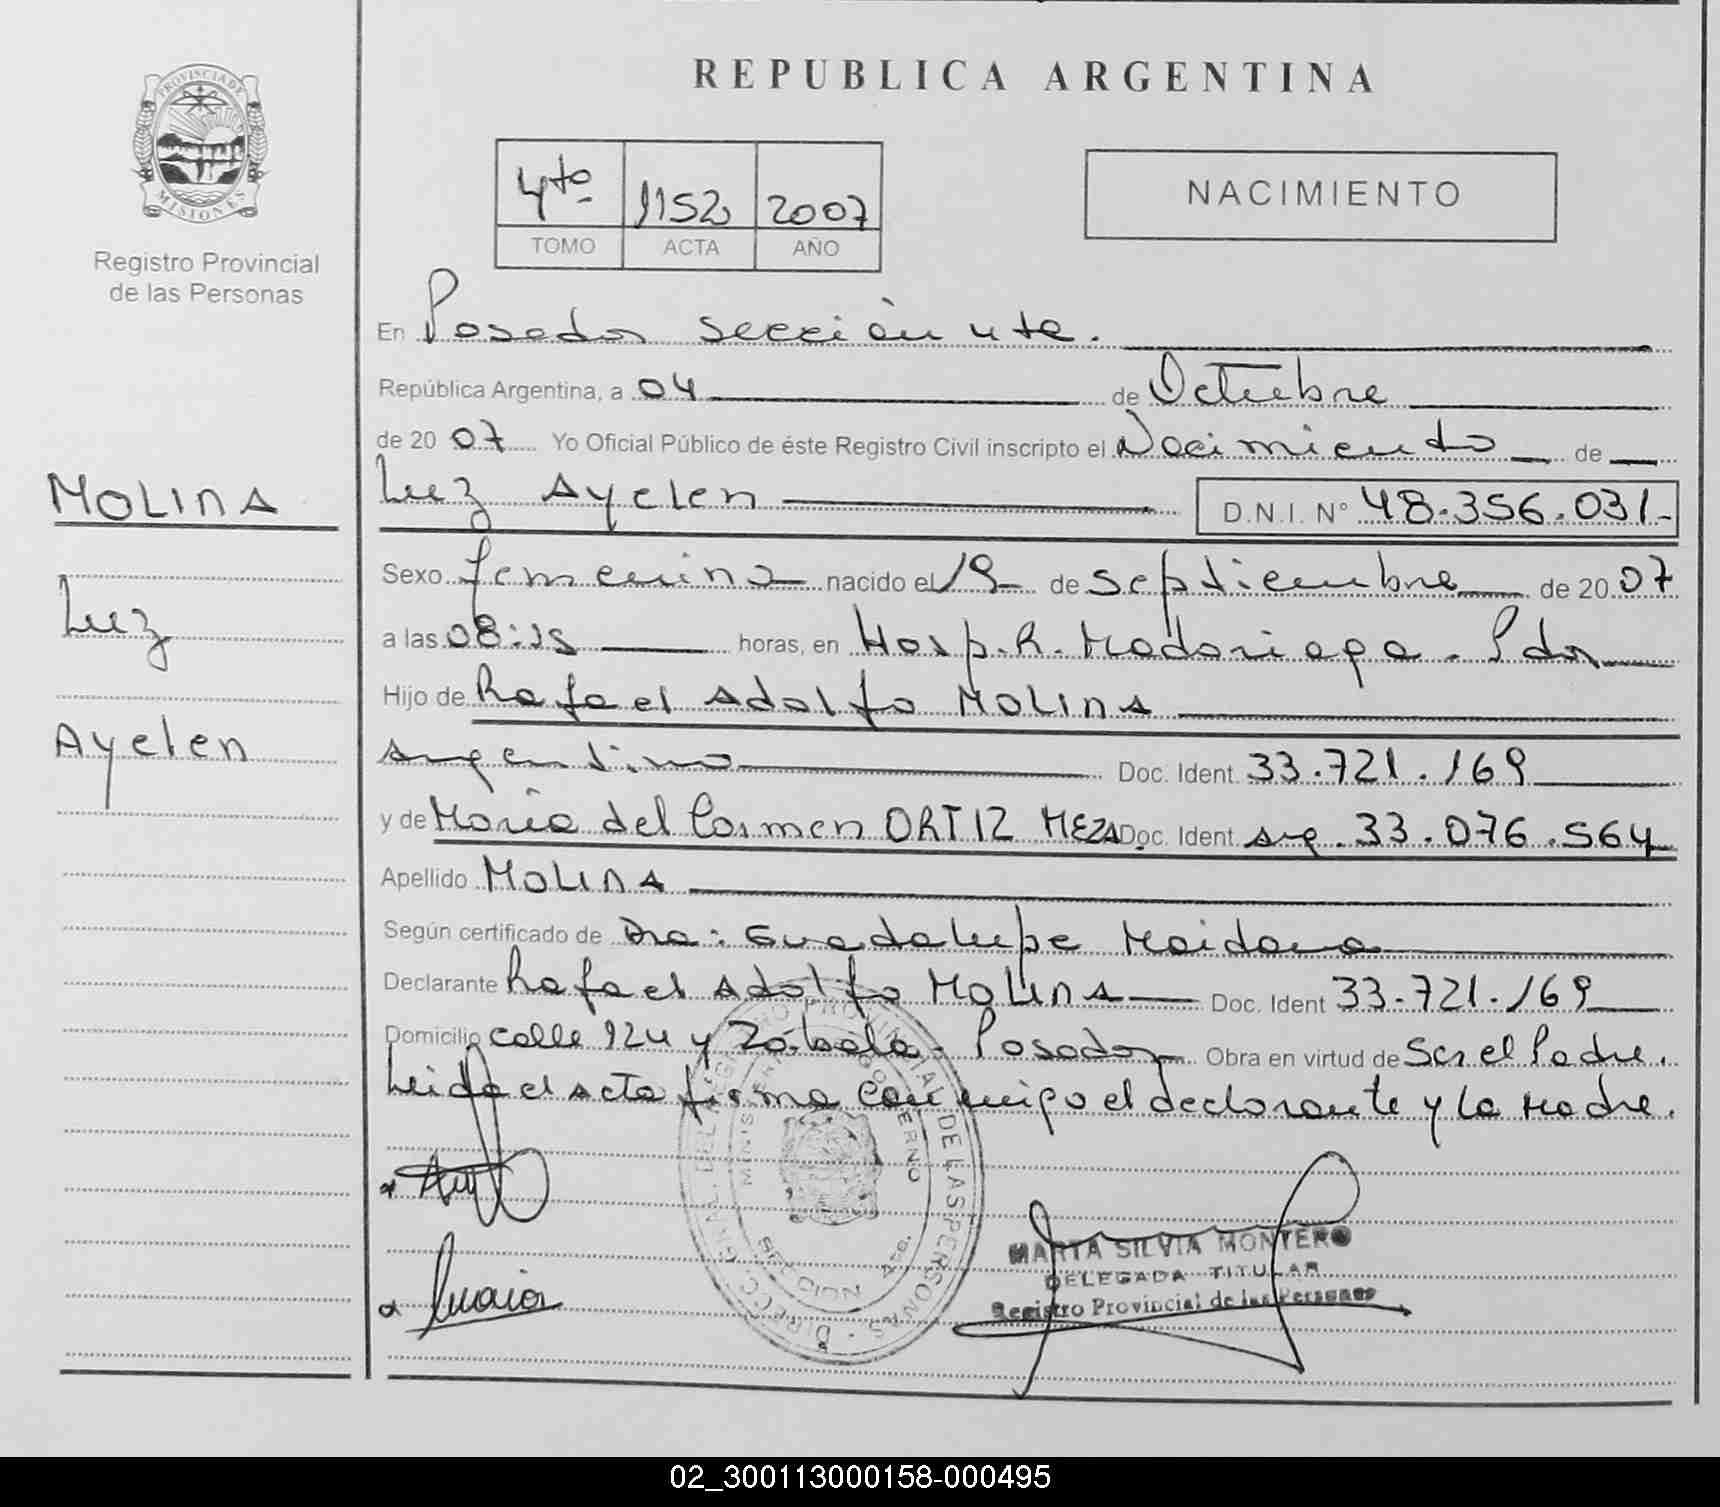 PROVINCIA DE
MISIONES
Registro Provincial
de las Personas
MOLINA
Luz
Ayelen
REPUBLICA ARGENTINA
4to 1152 2007
TOMO ACTA AÑO
NACIMIENTO
En Posadas sección 4ta.
República Argentina, a 04 de Octubre
de 2007 Yo Oficial Público de éste Registro Civil inscripto el Nacimiento de
Luz Ayelen D.N.I. N° 48.356.031-
Sexo femenino nacido el 19 de septiembre de 2007
a las 08:15 horas, en Hosp. R. Madariaga. Pdas
Hijo de Rafael Adolfo MOLINA
Argentino Doc. Ident. 33.721.169
y de María del Carmen ORTIZ MEZA Doc. Ident. Arg. 33.076.564
Apellido MOLINA
Según certificado de Dra: Guadalupe Maidana
Declarante Rafael Adolfo MOLINA Doc. Ident 33.721.169
Domicilio calle 124 y Zabala. Posadas Obra en virtud de Ser el Padre.
Leida el acta firma conmigo el declarante y la Madre.
MARTA SILVIA MONTERO
DELEGADA TITULAR
Registro Provincial de las Personas
02_300113000158-000495